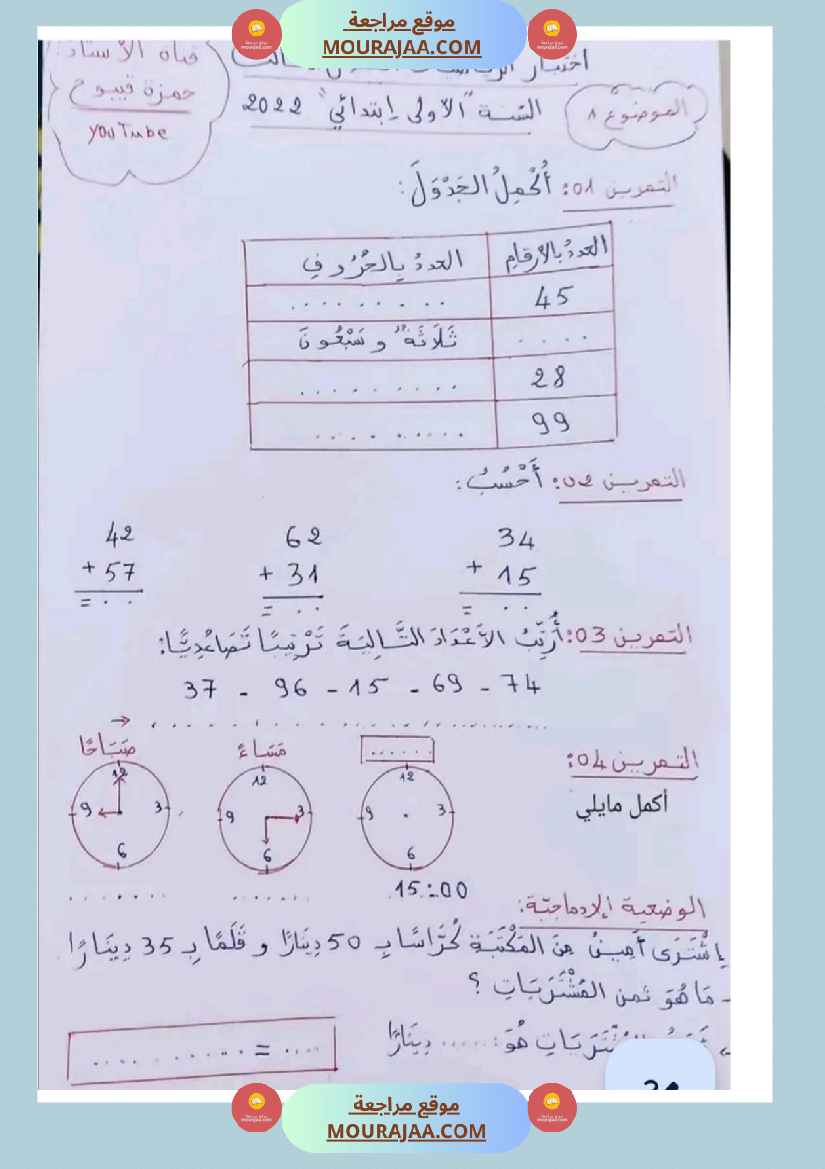 موقع مراجعة
MOURAJAA.COM
قناة الأستاذ:
حمزة قيبوح
YouTube
اختبار
السنة "الأولى إبتدائي" 2022
الموضوع 8
التمرين 01: أُكْمِلُ الجَدْوَلَ:
العددُ بالأرقامِ العددُ بِالحُرُوفِ
45 ..........
.... ثَلَاثَةٌ و سَبْعُونَ
28 ..........
99 ..........
التمرين 02: أَحْسُبُ:
34 62 42
+ 15 + 31 + 57
= . . = . . = . .
التمرين 03: أُرَتِّبُ الأَعْدَادَ التَّالِيَةَ تَرْتِيبًا تَصَاعُدِيًّا:
37 - 96 - 15 - 69 - 74
→ ..............................
التمرين 04:
أكمل مايلي
...... مَسَاءً صَبَاحًا
12 12 12
9 3 9 3 9 3
6 6 6
15:00 ....... .......
الوضعية الإدماجية:
اِشْتَرَى أَمِينُ مِنَ المَكْتَبَةِ كُرَّاسًا بِـ 50 دِينَارًا و قَلَمًا بِـ 35 دِينَارًا.
- مَا هُوَ ثمن المُشْتَرَيَاتِ ؟
هُوَ: ...... دِينَارًا
.... = .... ......
موقع مراجعة
MOURAJAA.COM